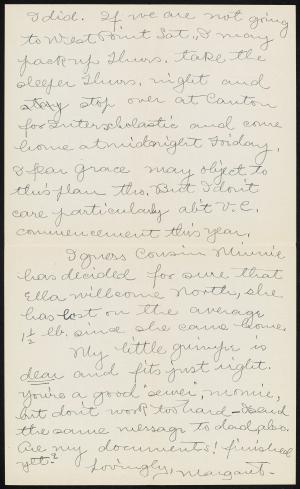 I did. If we are not going
to West Point Sat., I may
pack up Thurs. take the
sleeper Thurs. night and
stop over at Canton
for Interscholastic and come
home at midnight Friday.
I fear Grace may object to
this plan tho. But I don't
care particularly ab't V.C.
commencement this year.
I guess Cousin Minnie
has decided for sure that
Ella will come North, she
has lost on the average
1½ lb. since she came home.
My little guimpe is
dear and fits just right.
You're a good "sewer", momie,
but don't work too hard – I send
the same message to dad, also.
Are my documents! finished
yet?
Lovingly, Margaret.